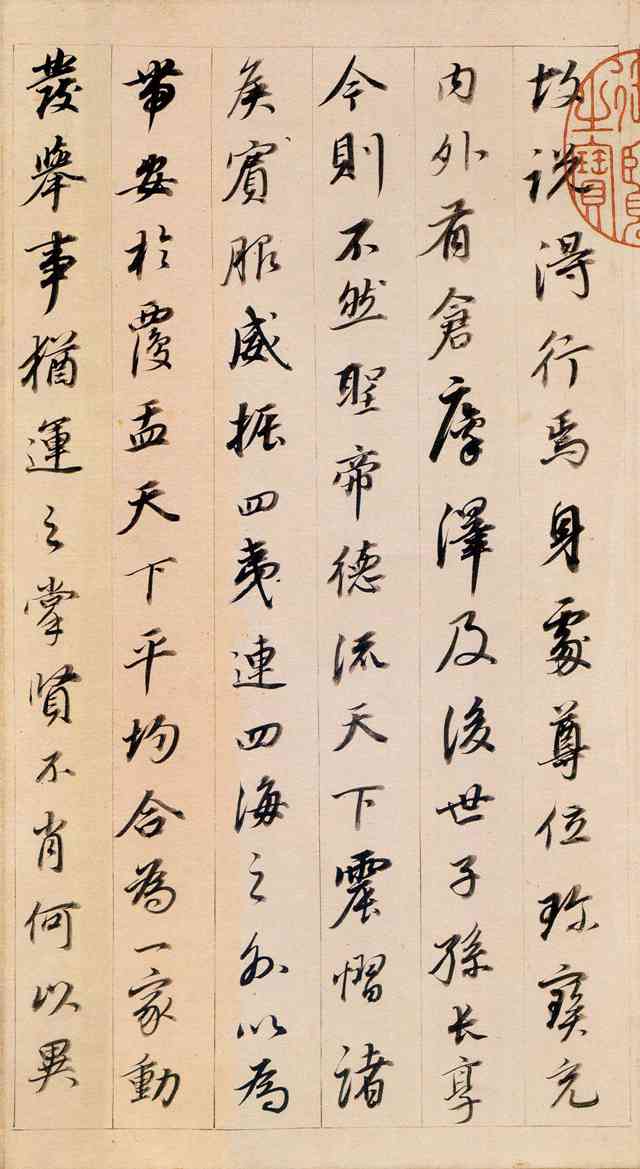 故說得行焉身處尊位珍寳充
內外有倉廩澤及後世子孫長享
今則不然聖帝德流天下震慴諸
侯賓服威振四夷連四海之外以為
帶安於覆盂天下平均合為一家動
發舉事猶運之掌賢不肖何以異